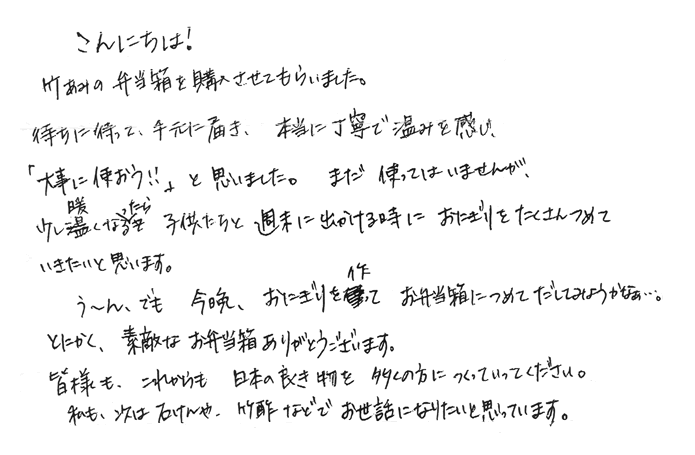 こんにちは!
竹あみの弁当箱を購入させてもらいました。
待ちに待って、手元に届き、本当に丁寧で温みを感じ、
「大事に使おう!!」と思いました。まだ使ってはいませんが、
少し暖くなったら子供たちと週末に出かける時におにぎりをたくさんつめて
いきたいと思います。
う〜ん、でも今晩、おにぎりを作って お弁当箱につめてだしてみようかなぁ…。
とにかく、素敵なお弁当箱ありがとうございます。
皆様も、これからも日本の良き物を多くの方につくっていってください。
私も、次は石けんや、竹酢などでお世話になりたいと思っています。